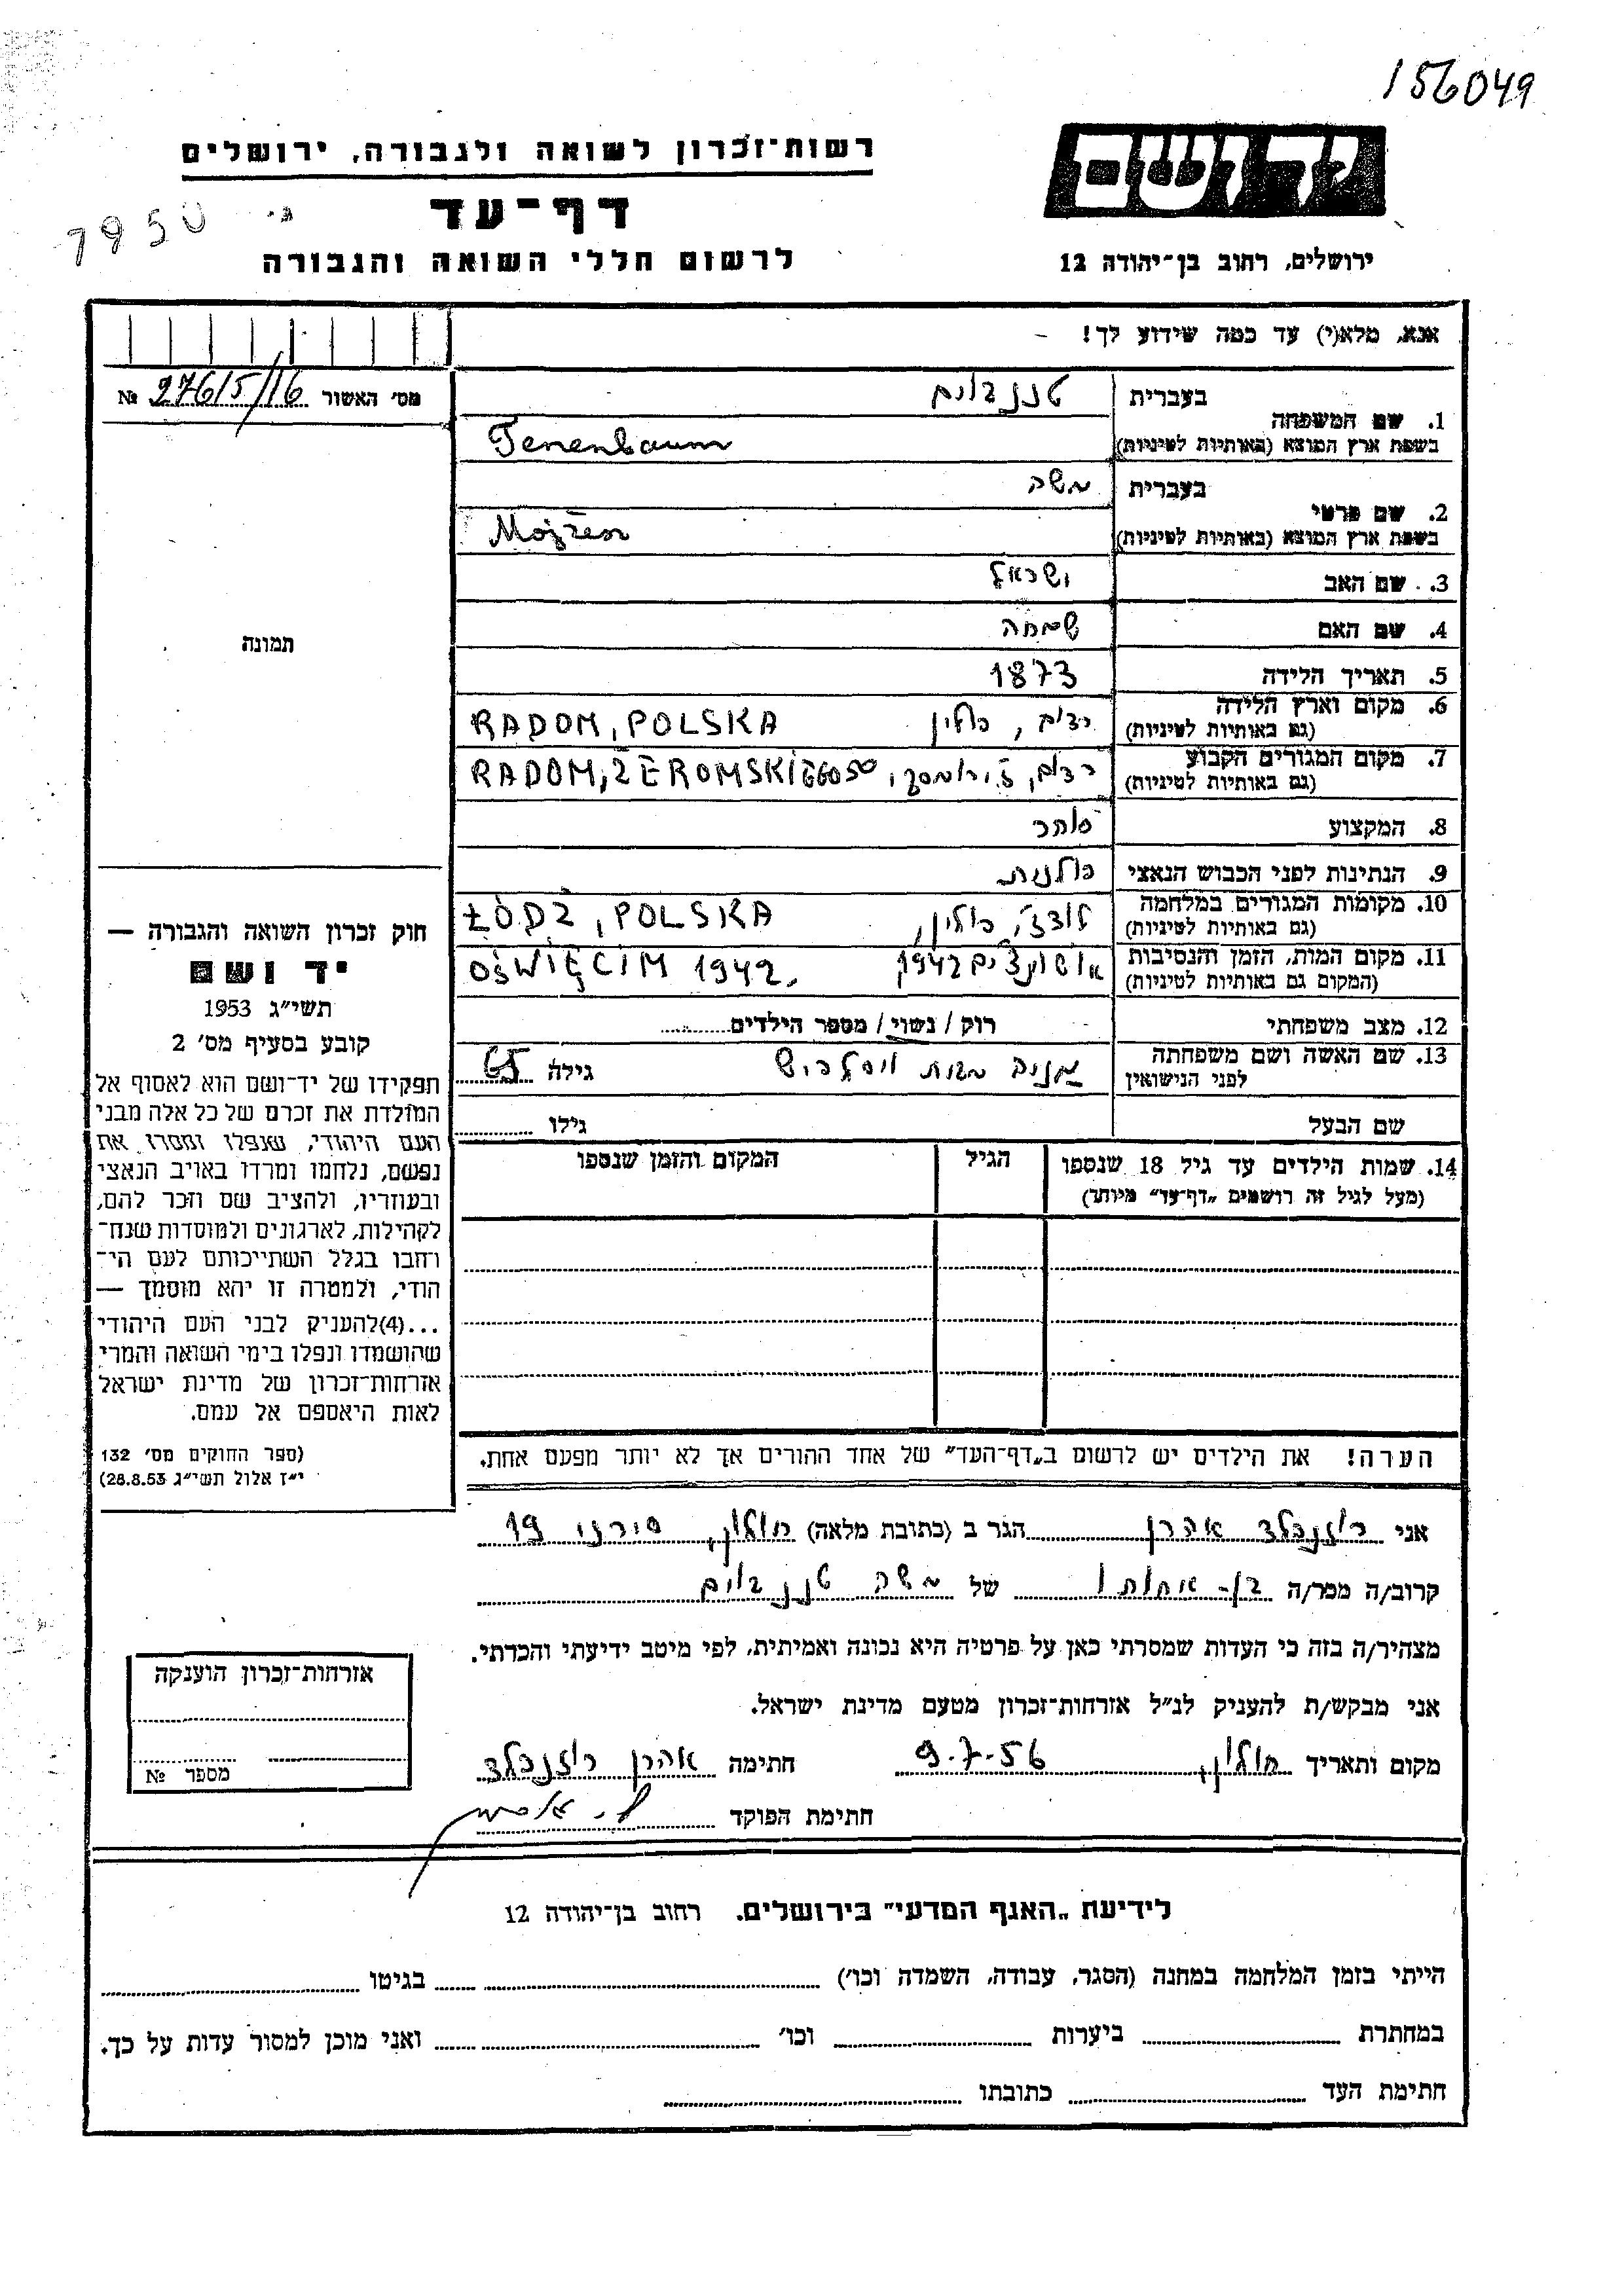 156049
יד ושם
רשות־זכרון לשואה ולגבורה, ירושלים
דף־עד
לרשום חללי השואה והגבורה
ירושלים, רחוב בן־יהודה 12
אנא, מלא(י) עד כמה שידוע לך!
מס' האשור 276/5/16 №
1. שם המשפחה
בעברית טננבוים
בשפת ארץ המוצא (באותיות לטיניות) Tenenbaum
2. שם פרטי
בעברית משה
בשפת ארץ המוצא (באותיות לטיניות)
3. שם האב ישראל
4. שם האם שמחה
5. תאריך הלידה 1873
6. מקום וארץ הלידה רדום, פולין RADOM, POLSKA
(גם באותיות לטיניות)
7. מקום המגורים הקבוע רדום, RADOM, ŻEROMSKIEGO 50
(גם באותיות לטיניות)
8. המקצוע סוחר
9. הנתינות לפני הכבוש הנאצי פולנית
10. מקומות המגורים במלחמה לודז', פולין, ŁÓDŹ, POLSKA
(גם באותיות לטיניות)
11. מקום המות, הזמן והנסיבות 1942 OŚWIĘCIM 1942.
(המקום גם באותיות לטיניות)
12. מצב משפחתי רוק / נשוי / מספר הילדים
13. שם האשה ושם משפחתה מבית גילה 65
לפני הנישואין
שם הבעל גילו
14. שמות הילדים עד גיל 18 שנספו הגיל המקום והזמן שנספו
(מעל לגיל זה רושמים „דף־עד" מיוחד)
הערה! את הילדים יש לרשום ב„דף־העד" של אחד ההורים אך לא יותר מפעם אחת.
תמונה
חוק זכרון השואה והגבורה —
יד ושם
תשי"ג 1953
קובע בסעיף מס' 2
תפקידו של יד־ושם הוא לאסוף אל
המולדת את זכרם של כל אלה מבני
העם היהודי, שנפלו ומסרו את
נפשם, נלחמו ומרדו באויב הנאצי
ובעוזריו, ולהציב שם וזכר להם,
לקהילות, לארגונים ולמוסדות שנח־
רחבו בגלל השתייכותם לעם הי־
הודי, ולמטרה זו יהא מוסמך —
...(4)להעניק לבני העם היהודי
שהושמדו ונפלו בימי השואה והמרי
אזרחות־זכרון של מדינת ישראל
לאות היאספם אל עמם.
(ספר החוקים מס' 132
י"ז אלול תשי"ג 28.8.53)
אני רוזנבלד אהרן הגר ב (כתובת מלאה) חולון, 19
קרוב/ה מכר/ה בן-אחותו של משה טננבוים
מצהיר/ה בזה כי העדות שמסרתי כאן על פרטיה היא נכונה ואמיתית, לפי מיטב ידיעתי והכרתי.
אני מבקש/ת להעניק לנ"ל אזרחות־זכרון מטעם מדינת ישראל.
מקום ותאריך חולון, 9.7.56 חתימה אהרן רוזנבלד
חתימת הפוקד
אזרחות־זכרון הוענקה
מספר №
לידיעת „האגף המדעי" בירושלים, רחוב בן־יהודה 12
הייתי בזמן המלחמה במחנה (הסגר, עבודה, השמדה וכו') בגיטו
במחתרת ביערות וכו' ואני מוכן למסור עדות על כך.
חתימת העד כתובתו